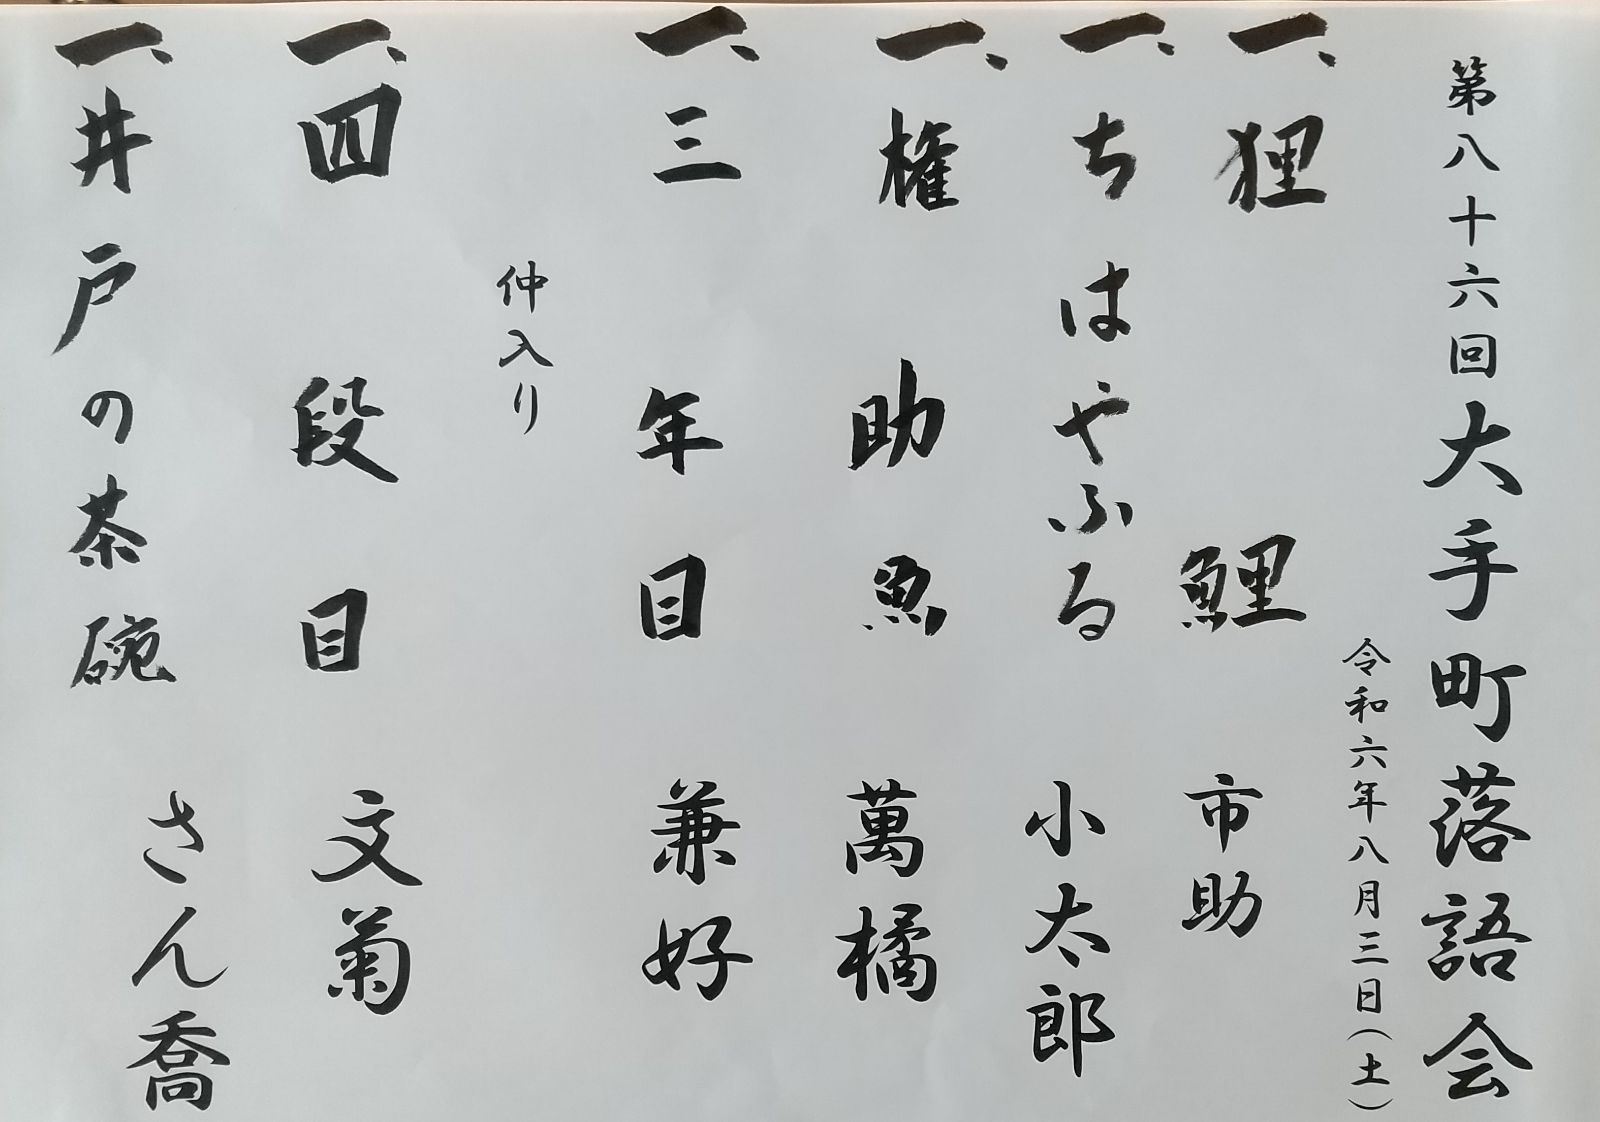 第八十六回大手町落語会
令和六年八月三日(土)
一、狸鯉 市助
一、ちはやふる 小太郎
一、権助魚 萬橘
一、三年目 兼好
仲入り
一、四段目 文菊
一、井戸の茶碗 さん喬